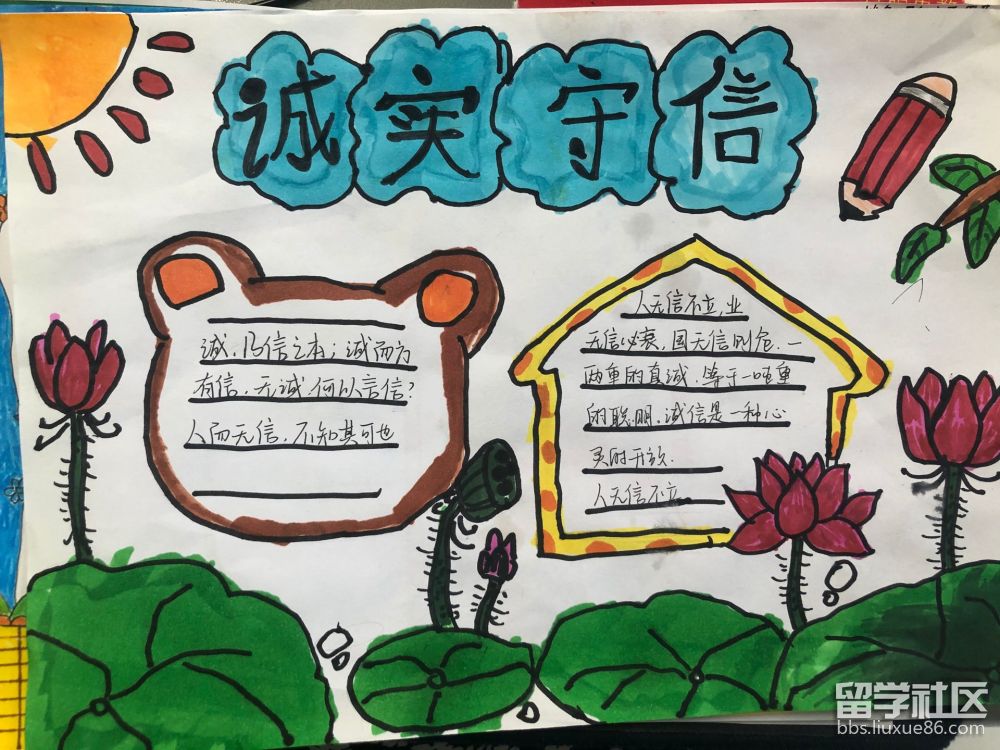 诚实守信
诚,乃信之本;诚而为
有信,无诚,何以言信?
人而无信,不知其可也
人无信不立,业
无信必衰,国无信则危.一
两重的真诚.等于一吨重
的聪明,诚信是一种心
灵的开放.
人无信不立
留学社区
bbs.liuxue86.com